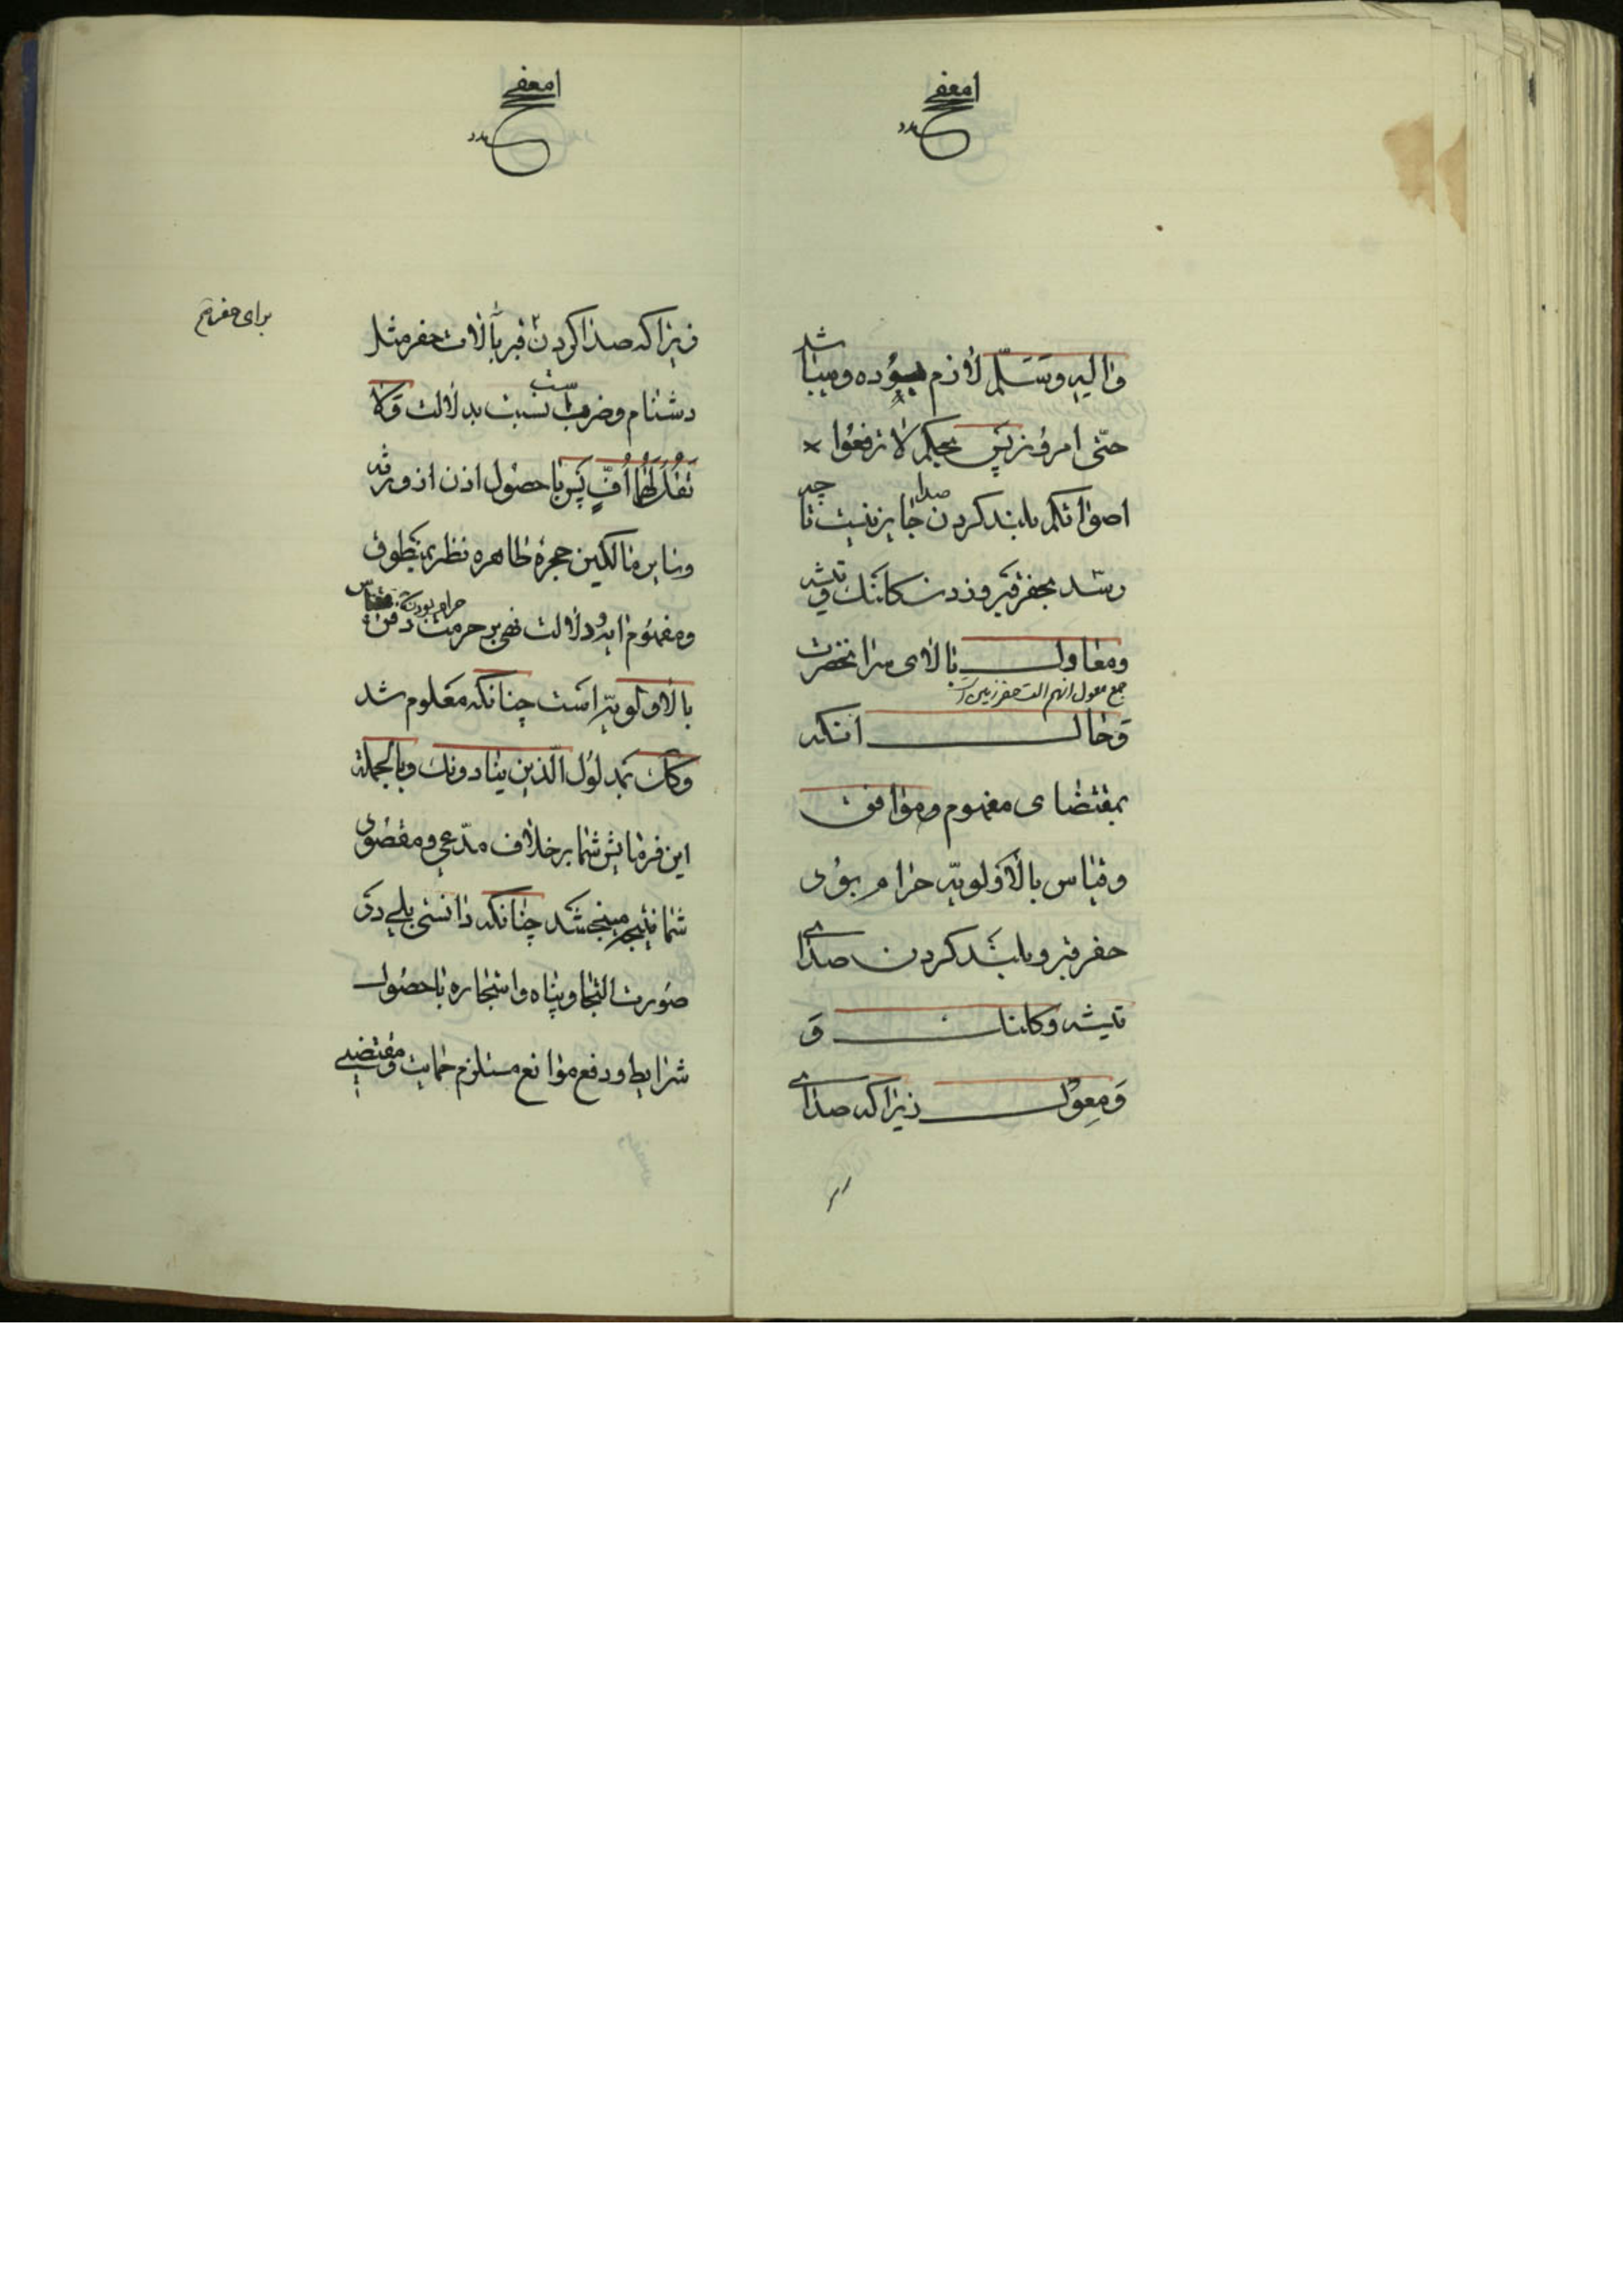 وٰالیهِ وَسَلَّم لٰازم بوُده ومیبٰاشد
حتّی امروُز پَس بحکم لٰا ترفعوُا
اصوٰاتکم بلند کردن صدا جٰایز نیست تٰا چه
رسَد بحفر قبر وزدن کلنک و تیشه
ومعٰاول بٰالٰای سر انحضرت
جمع معول انهم الت حفر زمین است
وَحٰال انکه
بمقتضٰای مفهوم وموٰافق
وقیٰاس بالٰاَولویّه حرٰام بوُد
حفر قبر و بلند کردن صدٰای
تیشه وکلنک وَ
وَمِعوَل زیرٰا که صدٰای
زیرٰا که صدٰا کردن قبر بآلٰات حفر مثل
برای حفر
دشنٰام وضرب است نسبت بدلٰالت وَلٰا
تَقُل لَهُمٰا اُفٍّ پَس بٰا حصوُل اذن از ورثه
وسٰایر مٰالکین حجرهٔ طٰاهره نظر بمنطوُق
ومفهوُم ایه ودلٰالت نهی بر حرمت دفن
حرام بودن
بالٰاولویّه است چنٰانکه معَلوم شد
وکک بمدلوُل الّذین ینٰادونک وبالجملة
این فرمٰایش شمٰا بر خلٰاف مدّعی ومقصوُد
شمٰا نتیجه میبخشد چنٰانکه دٰانستی بلی در
صوُرت التجٰا وپنٰاه واستجٰاره بٰا حصوُل
شرٰایط ودفع موٰانع مستلزم حمٰایت ومقتضی